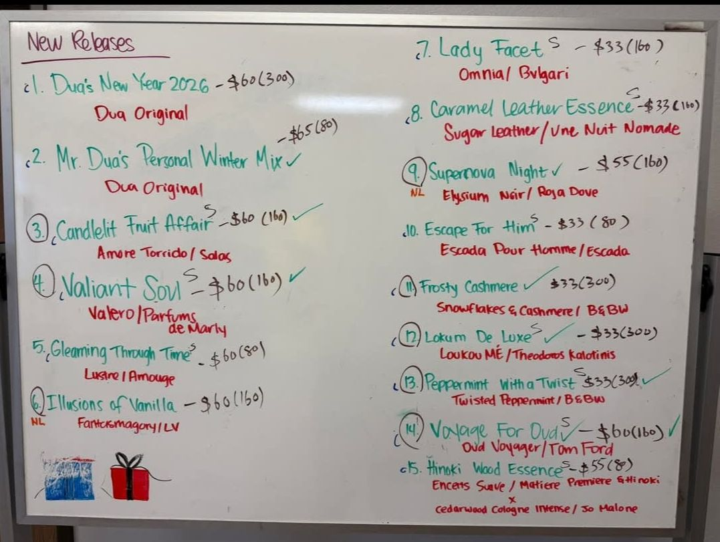 New Releases
1. Dua's New Year 2026 - $60(300)
Dua Original
- $65(80)
2. Mr. Dua's Personal Winter Mix ✓
Dua Original
3. Candlelit Fruit Affair S - $60 (160) ✓
Amore Torrido/Salas
4. Valiant Soul S - $60(160) ✓
Valero/Parfums
de Marly
5. Gleaming Through Time S - $60(80)
Lustre/Amouge
6. Illusions of Vanilla - $60(160)
NL Fantasmagory/LV
7. Lady Facet S - $33(160)
Omnia/Bvlgari
8. Caramel Leather Essence S - $33(160)
Sugar Leather/Une Nuit Nomade
9. Supernova Night ✓ - $55(160)
NL Elysium Noir/Roja Dove
10. Escape For Him S - $33(80)
Escada Pour Homme/Escada
11. Frosty Cashmere ✓ $33(300)
Snowflakes & Cashmere/B&BW
12. Lokum De Luxe S ✓ - $33(300)
Loukou MÉ/Theodoros Kalotinis
13. Peppermint With a Twist S $33(300) ✓
Twisted Peppermint/B&BW
14. Voyage For Oud S ✓ - $60(160) ✓
Oud Voyager/Tom Ford
15. Hinoki Wood Essence S - $55(80)
Encens Suave/Matiere Premiere & Hinoki
x
Cedarwood Cologne Intense/Jo Malone